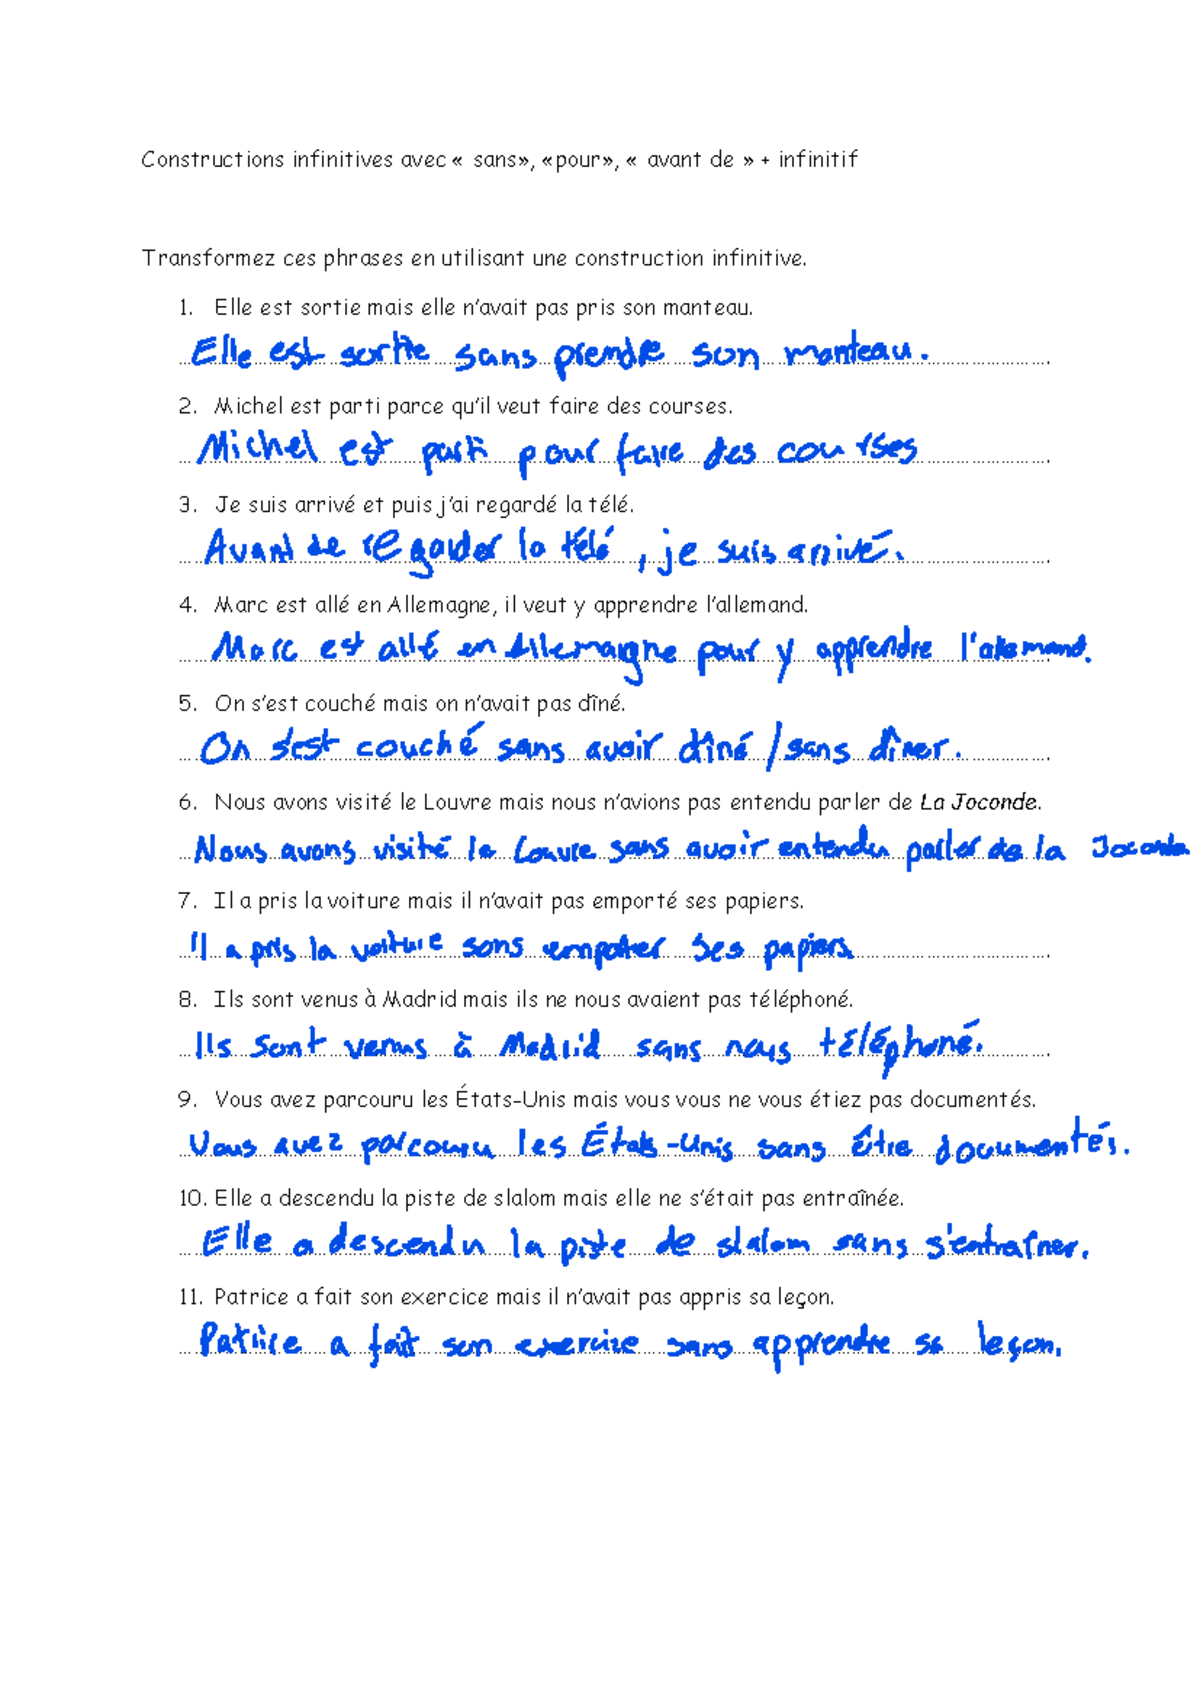 Constructions infinitives avec « sans», «pour», « avant de » + infinitif
Transformez ces phrases en utilisant une construction infinitive.
1. Elle est sortie mais elle n’avait pas pris son manteau.
Elle est sortie sans prendre son manteau.
2. Michel est parti parce qu’il veut faire des courses.
Michel est parti pour faire des courses
3. Je suis arrivé et puis j’ai regardé la télé.
Avant de regarder la télé, je suis arrivé.
4. Marc est allé en Allemagne, il veut y apprendre l’allemand.
Marc est allé en Allemaigne pour y apprendre l'allemand.
5. On s’est couché mais on n’avait pas dîné.
On s'est couché sans avoir dîné / sans dîner.
6. Nous avons visité le Louvre mais nous n’avions pas entendu parler de La Joconde.
Nous avons visité le Louvre sans avoir entendu parler de la Joconde
7. Il a pris la voiture mais il n’avait pas emporté ses papiers.
Il a pris la voiture sans empoter ses papiers.
8. Ils sont venus à Madrid mais ils ne nous avaient pas téléphoné.
Ils sont venus à Madrid sans nous téléphoné.
9. Vous avez parcouru les États-Unis mais vous vous ne vous étiez pas documentés.
Vous avez parcouru les États-Unis sans être documentés.
10. Elle a descendu la piste de slalom mais elle ne s’était pas entraînée.
Elle a descendu la piste de slalom sans s'entraîner.
11. Patrice a fait son exercice mais il n’avait pas appris sa leçon.
Patrice a fait son exercice sans apprendre sa leçon.